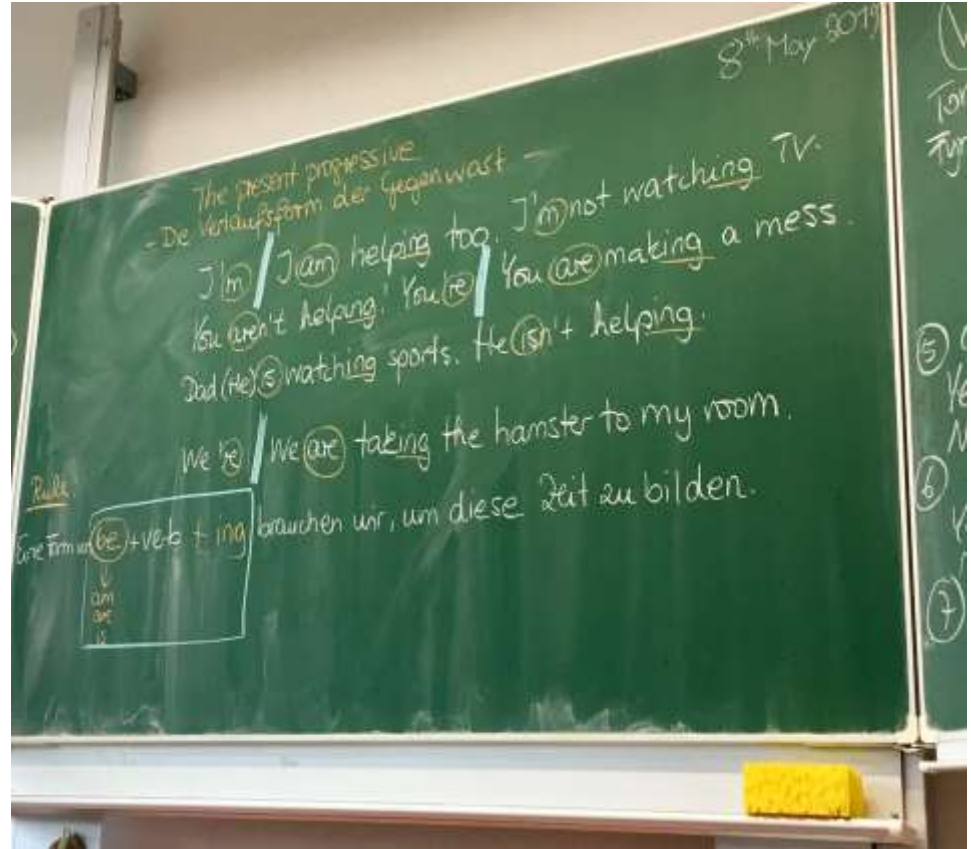 8th May 2019
The present progressive
- Die Verlaufsform der Gegenwart -
I'm / I am helping too. I'm not watching TV.
You aren't helping! You're / You are making a mess.
Dad (He)'s watching sports. He isn't helping.
We're / We are taking the hamster to my room.
Rule:
Eine Form von be + verb + ing brauchen wir, um diese Zeit zu bilden.
↓
am
are
is
5
6
7